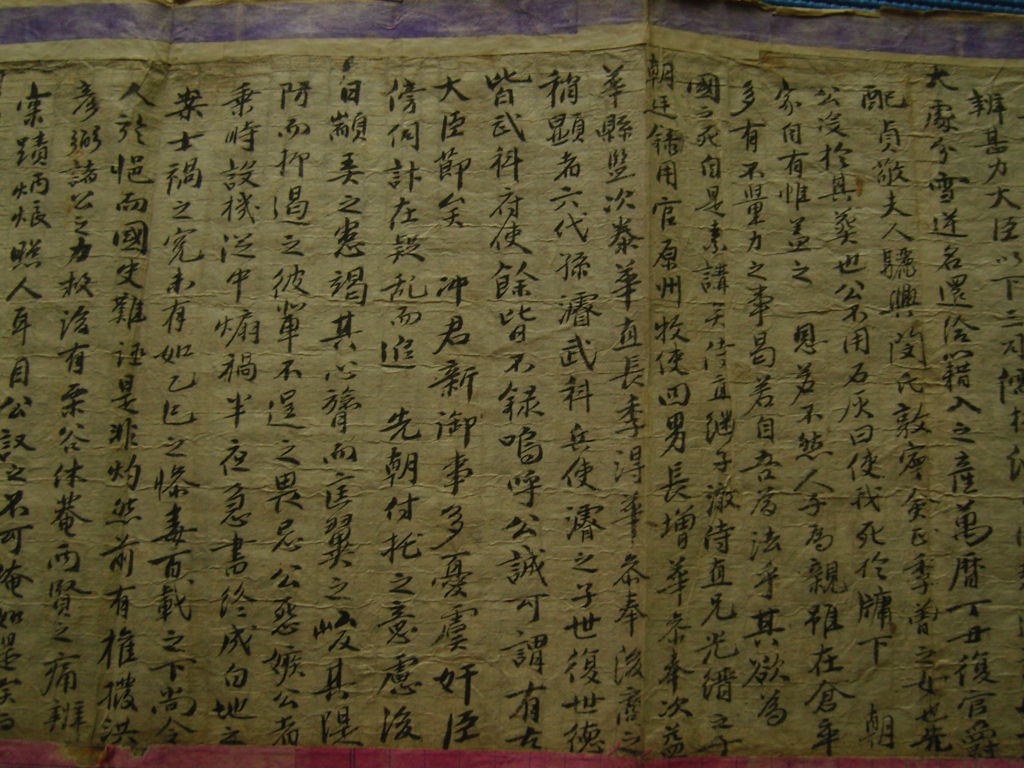 辨甚力大臣以下三司
大處分雪逆名還給籍入之産萬曆丁丑復官爵
配貞敬夫人驪興閔氏敦寧僉正季曾之女也先
公沒於其葬也公不用石灰曰使我死於牖下 朝
家倘有惟盖之 恩若不然人子爲親雖在倉卒
多有不量力之事曷若自吾爲法乎其欲爲
國而死自是素講矣侍直繼子澂侍直兄光縉之子
朝廷錄用官原州牧使四男長增華參奉次益
華縣監次泰華直長季淂華參奉後裔之
稍顯者六代孫濬武科兵使濬之子世復世德
皆武科府使餘皆不錄嗚呼公誠可謂有古
大臣節矣 冲君新御事多憂虞奸臣
傍伺計在疑乱而追 先朝付托之意慮後
日顓美之患謁其心膂而匡翼之岐其湿
防而抑遏之彼輩不逞之畏忌公惎嫉公者
乘時設機從中煽禍半夜急書終成白地之
案士禍之寃未有如乙巳之慘毒百載之下尚令
人於悒而國史難誣是非灼然前有推攓洪
彦弼諸公之力救後有栗谷休菴兩賢之痛辨
實蹟炳烺照人耳目公議之不可掩如是矣